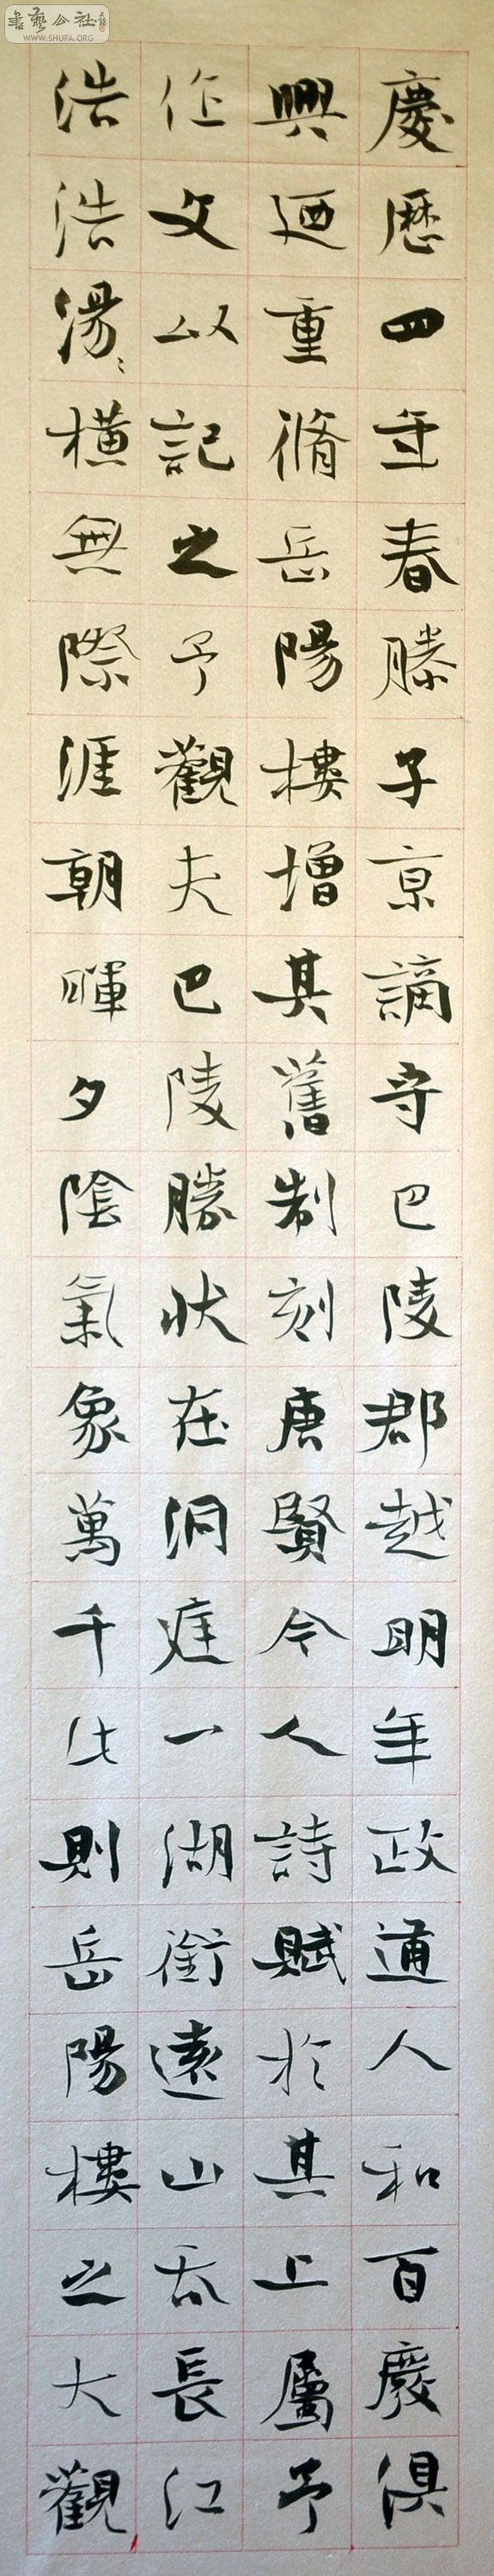 慶歷四年春滕子京謫守巴陵郡越明年政通人和百廢俱
興迺重脩岳陽樓增其舊制刻唐賢今人詩賦於其上屬予
作文以記之予觀夫巴陵勝狀在洞庭一湖銜遠山吞長江
浩浩湯〻橫無際涯朝暉夕陰氣象萬千此則岳陽樓之大觀
書藝公社
WWW.SHUFA.ORG